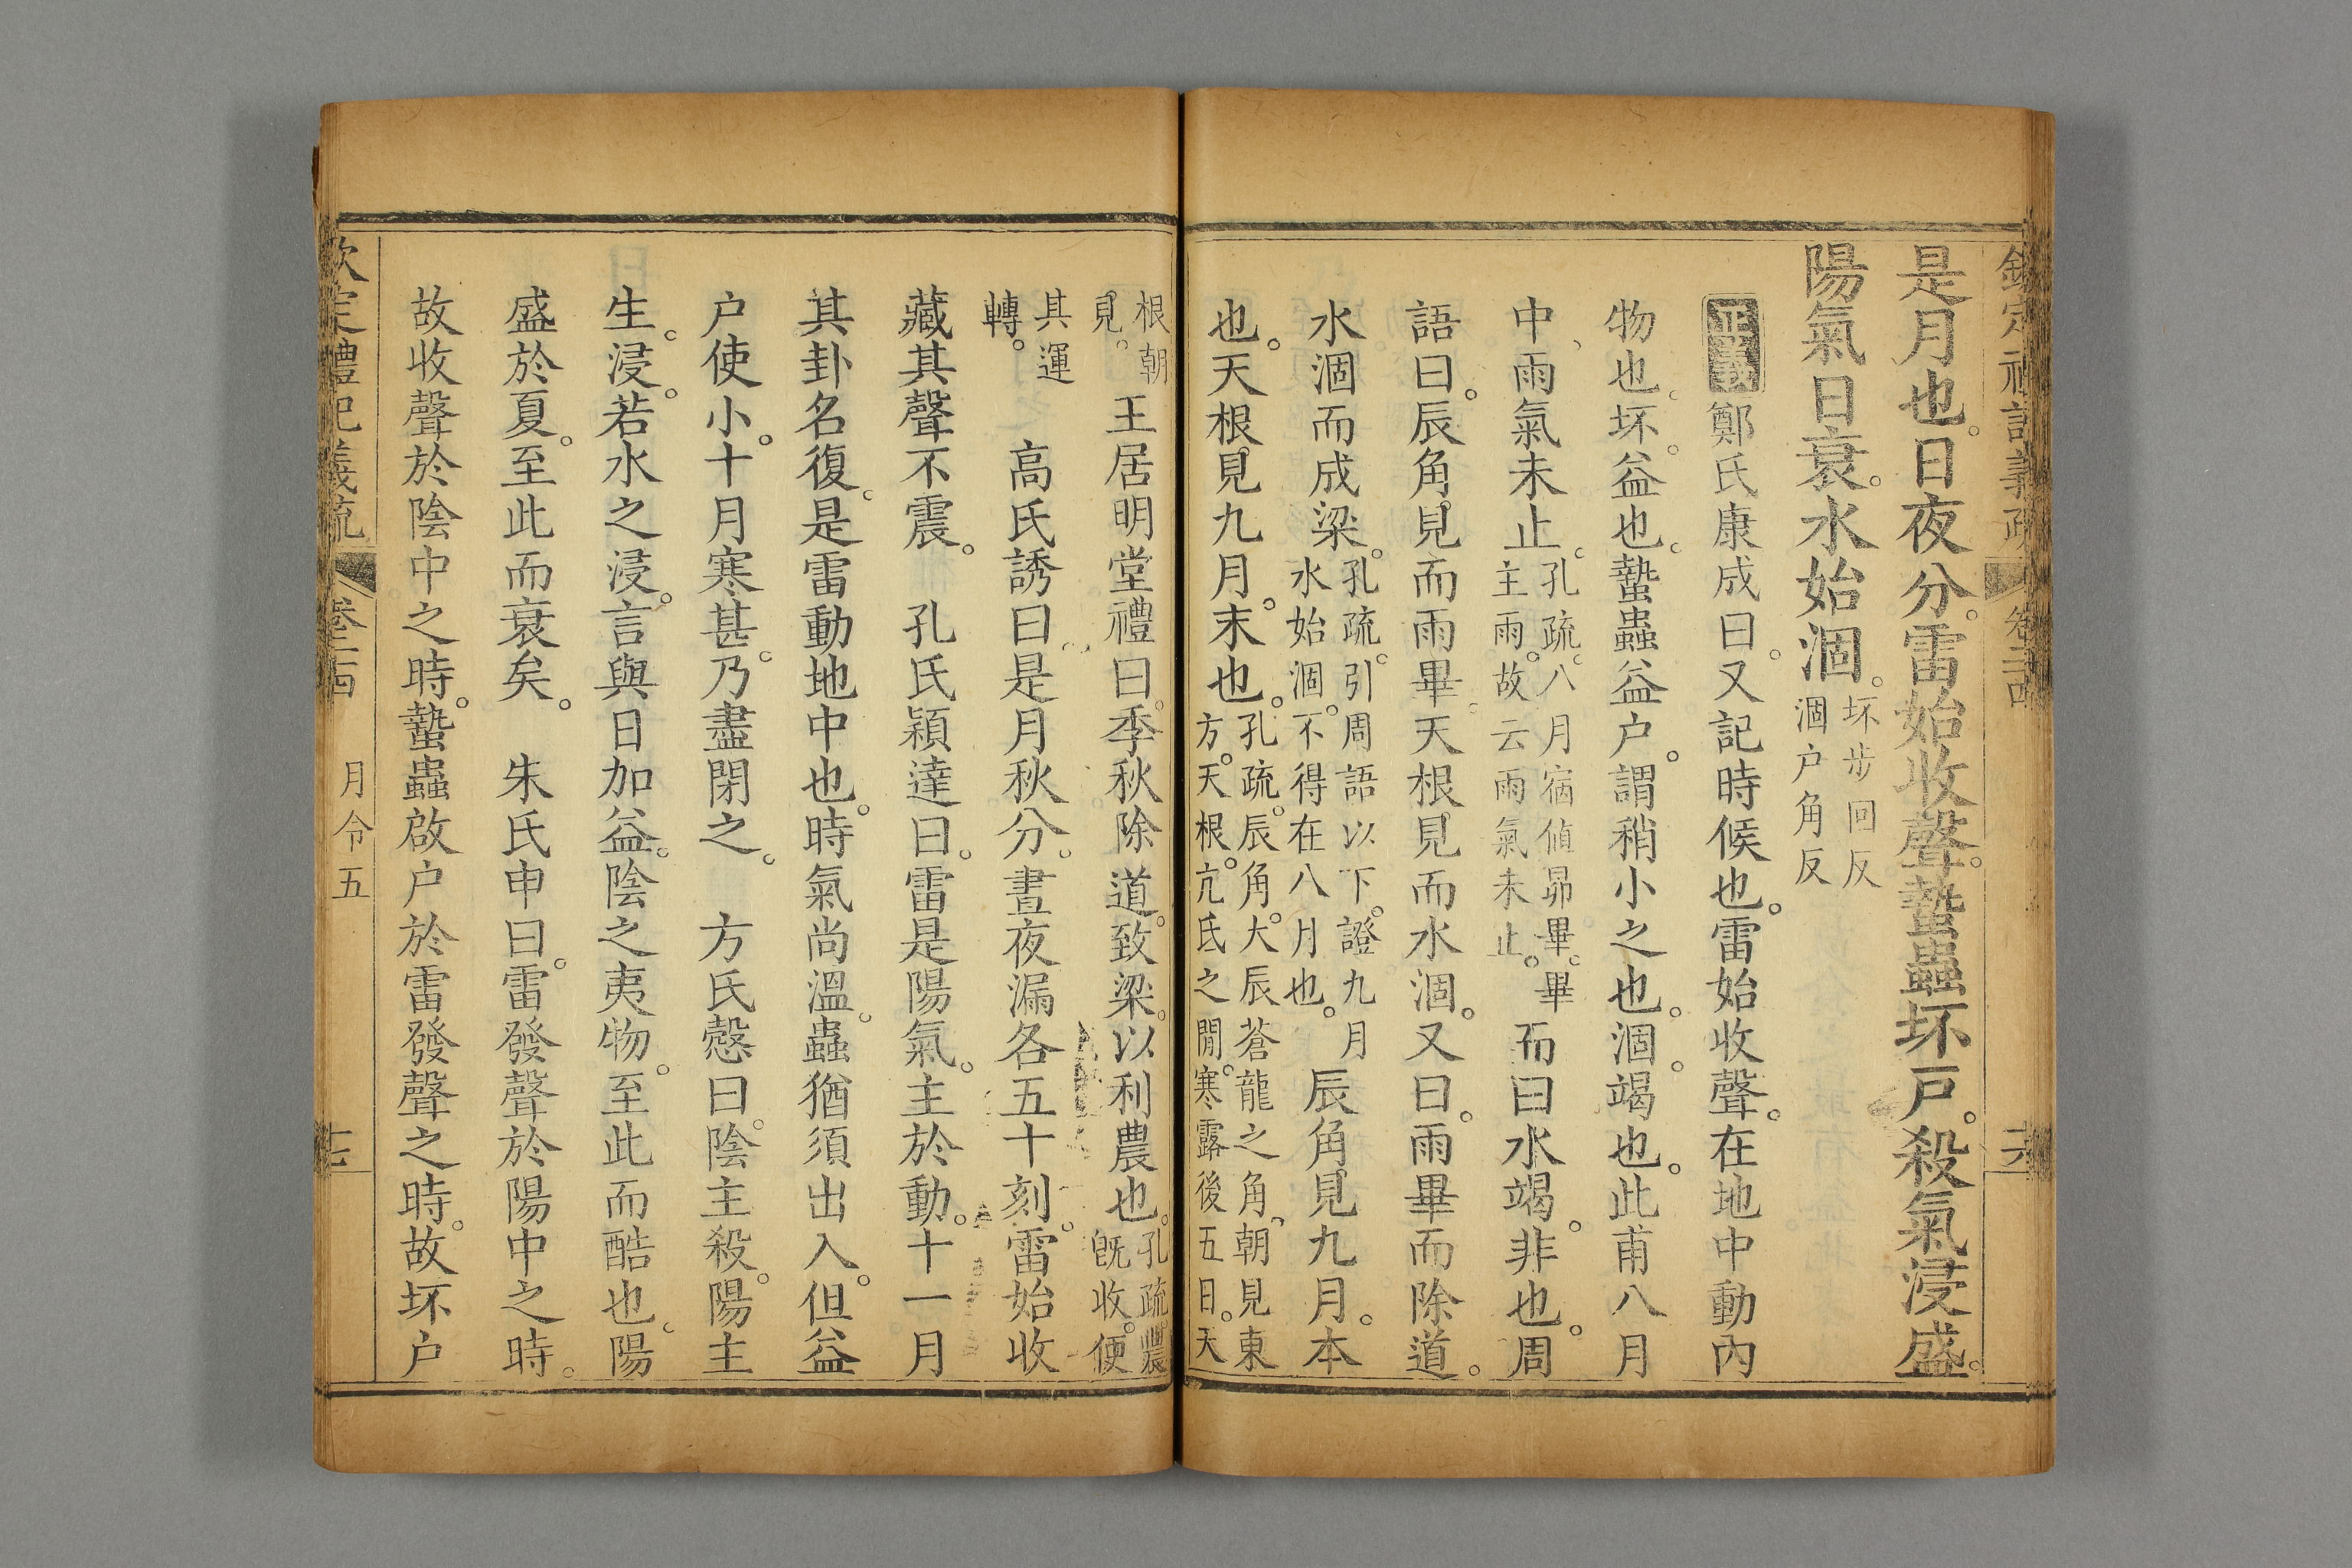 欽定禮記義疏 卷二十四
是月也。日夜分。雷始收聲。蟄蟲坏戸。殺氣浸盛。
陽氣日衰。水始涸。坏步回反
涸户角反
正義 鄭氏康成曰。又記時候也。雷始收聲。在地中動內
物也。坏。益也。蟄蟲益户。謂稍小之也。涸。竭也。此甫八月
中、雨氣未止。孔疏。八月宿值昴畢。畢
主雨。故云雨氣未止。而曰水竭。非也。周
語曰。辰角見而雨畢。天根見而水涸。又曰。雨畢而除道。
水涸而成梁。孔疏。引周語以下。證九月
水始涸。不得在八月也。辰角見九月。本
也。天根見九月。末也。孔疏。辰角。大辰蒼龍之角、朝見東
方。天根。亢氐之閒。寒露後五日。天
根朝
見。王居明堂禮曰。季秋除道。致梁。以利農也。孔疏。農
既收。便
其運
轉。高氏誘曰。是月秋分。晝夜漏各五十刻。雷始收
藏其聲不震。 孔氏穎達曰。雷是陽氣。主於動。十一月
其卦名復。是雷動地中也。時氣尚溫。蟲猶須出入。但益
户使小。十月寒甚。乃盡閉之。 方氏慤曰。陰主殺。陽主
生。浸。若水之浸。言與日加益。陰之夷物。至此而酷也。陽
盛於夏。至此而衰矣。 朱氏申曰。雷發聲於陽中之時。
故收聲於陰中之時。蟄蟲啟户於雷發聲之時。故坏户
欽定禮記義疏 卷二十四 月令五